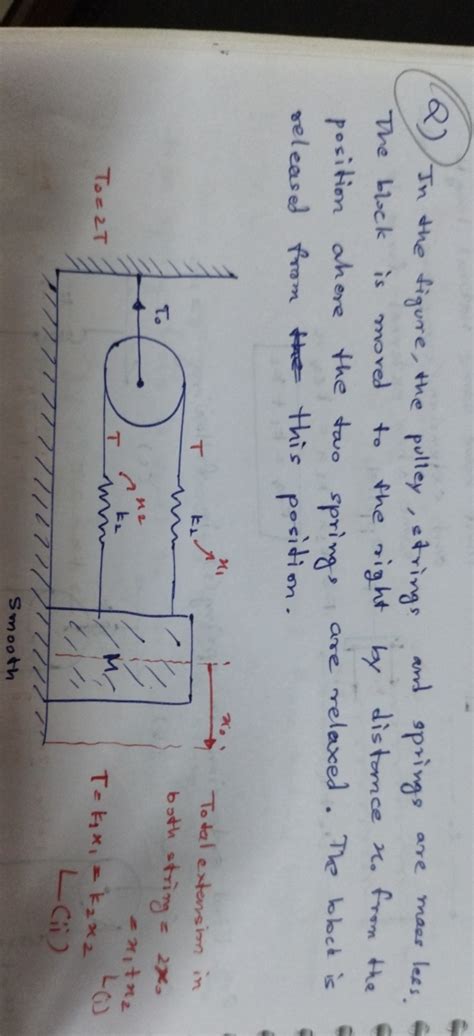 Q) In the figure, the pulley, strings and springs are mass less.
The block is moved to the right by distance x₀ from the
position where the two springs are relaxed. The block is
released from this position.
T₀ = 2T
T₀
T
T
x₁
x₂
k₂
k₂
M
x₀
Smooth
Total extension in
both string = 2x₀
= x₁ + x₂
L(i)
T = k₁x₁ = k₂x₂
L(ii)